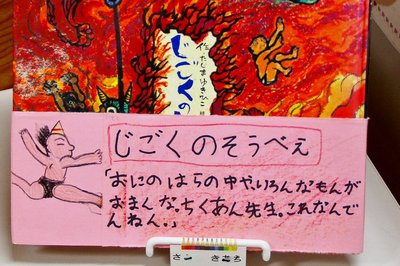 作 たじまゆきひこ
じごくの
じごくのそうべぇ
「おにの はらの中や、いろんなもんが
おまんな。ちくあん先生。これなんで
んねん。」